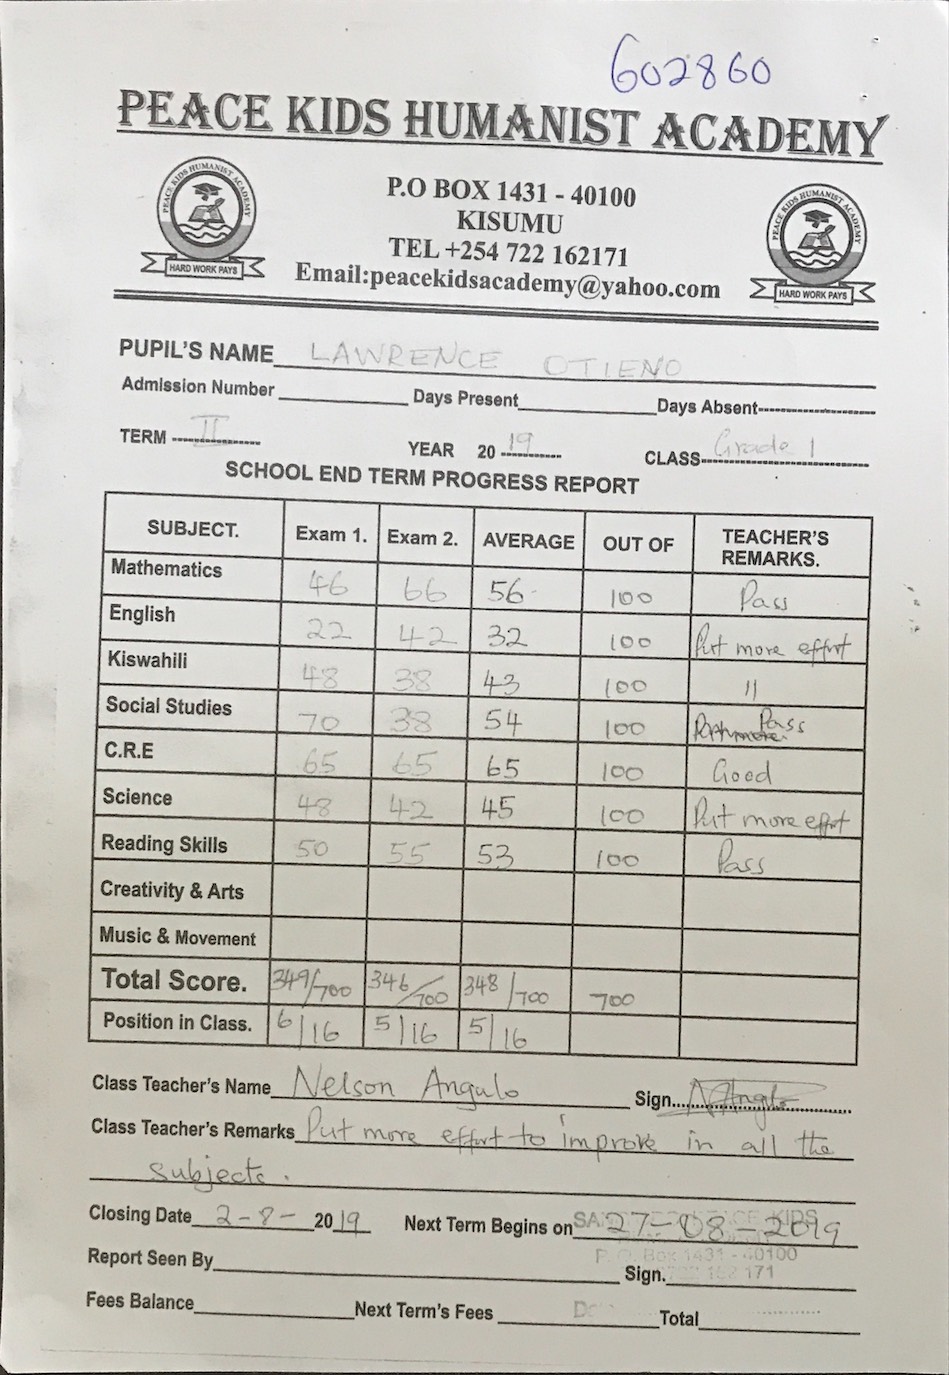 602860
PEACE KIDS HUMANIST ACADEMY
PEACE KIDS HUMANIST ACADEMY
HARD WORK PAYS
P.O BOX 1431 - 40100
KISUMU
TEL +254 722 162171
Email:peacekidsacademy@yahoo.com
PEACE KIDS HUMANIST ACADEMY
HARD WORK PAYS
PUPIL'S NAME LAWRENCE OTIENO
Admission Number Days Present Days Absent
TERM II YEAR 20 19 CLASS Grade 1
SCHOOL END TERM PROGRESS REPORT
SUBJECT. Exam 1. Exam 2. AVERAGE OUT OF TEACHER'S REMARKS.
Mathematics 46 66 56 100 Pass
English 22 42 32 100 Put more effort
Kiswahili 48 38 43 100 11
Social Studies 70 38 54 100 Pass
C.R.E 65 65 65 100 Good
Science 48 42 45 100 Put more effort
Reading Skills 50 55 53 100 Pass
Creativity & Arts
Music & Movement
Total Score. 349/700 346/700 348/700 700
Position in Class. 6/16 5/16 5/16
Class Teacher's Name Nelson Angulo Sign... NAngulo
Class Teacher's Remarks Put more effort to improve in all the
subjects.
Closing Date 2-8- 2019 Next Term Begins on 27-08-2019
P.O. Box 1431 - 40100
Report Seen By Sign.
Fees Balance Next Term's Fees Total